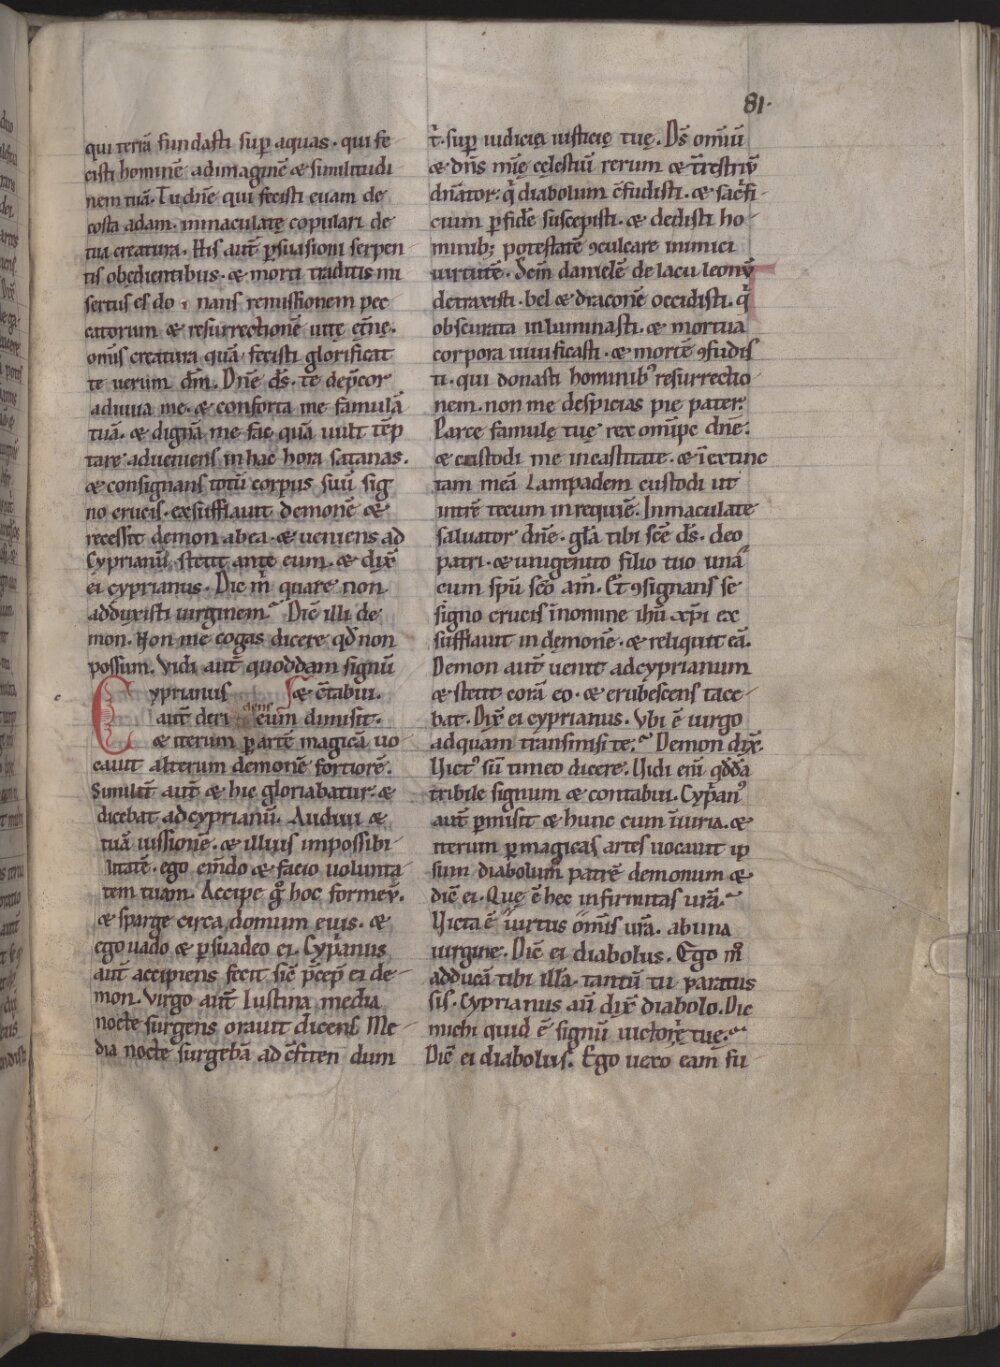 81.
qui terrā fundasti sup̱ aquas. qui fe
cisti hominē adimaginē & similitudi
nem tuā. Tu dn̄e qui fecisti euam de
costa adam. immaculatę copulari de
tua creatura. His aut̄ p̱suasioni serpen
tis obedientibus. & morti traditis mi
sertus es donans remissionem pec
catorum & resurrectionē uitę ęt̄nę.
om̄is creatura quā fecisti glorificat
te uerum dm̄. Dn̄e ds̄. te dep̄cor
adiuua me. & conforta me famulā
tuā. & dignā me fac quā uult tēp
tare adueniens in hac hora satanas.
& consignans totū corpus suū sig
no crucis. exsufflauit demonē &
recessit demon ab ea. & ueniens ad
Cyprianū. stetit ante eum. & dix̄
ei cyprianus. Dic m̄ quare non
adduxisti uirginem. Dic̄ illi de
mon. Non me cogas dicere qđ non
possum. Vidi aut̄ quoddam signū
Cyprianus & c̄tabui.
aut̄ deridens eum dimisit.
& iterum p̱ artē magicā uo
cauit alterum demonē fortiorē.
Similit̄ aut̄ & hic gloriabatur. &
dicebat ad cyprianū. Audiui &
tuā iussionē. & illius impossibi
litatē. ego em̄do & facio uolunta
tem tuam. Accipe g̊ hoc formeȳ.
& sparge circa domum eius. &
ego uado & p̱suadeo ei. Cyp̄anus
aut̄ accipiens fecit sic̄ p̄cep̄ ei de
mon. Virgo aut̄ Iustina media
nocte surgens orauit dicens. Me
dia nocte surgebā ad c̄fiten dum
t̄. sup̱ iudicia iusticię tuę. Ds̄ om̄iū
& dn̄s mīę cęlestiū rerum & t̄restriū
dn̄ator. q̄ diabolum c̄fudisti. & sac̄fi
cium p̱fide suscepisti. & dedisti ho
minib; potestatē ꝯculcare inimici
uirtutē. Dem̄ danielē de lacu leonū
detraxisti. bel & draconē occidisti. q̄
obscurata inluminasti. & mortua
corpora uiuificasti. & mortē ꝯfudis
ti. qui donasti hominib᾽ resurrectio
nem. non me despicias pie pater.
Parce famulę tuę rex om̄ipc̄ dn̄e.
& custodi me in castitate. & īextinc
tam meā lampadem custodi ut
intrē tecum in requiē. Inmaculate
saluator dn̄e. gła tibi sc̄e ds̄. deo
patri. & unigenito filio tuo unā
cum spū sc̄o am̄. Et ꝯsignans se
signo crucis īnomine ihū xp̄i ex
sufflauit in demonē. & reliquit eā.
Demon aut̄ uenit ad cyprianum
& stetit corā eo. & erubescens tace
bat. Dix̄ ei cyprianus. Vbi ē uirgo
ad quam transmisi te. Demon dix̄.
Uict᾽ sū timeo dicere. Uidi em̄ qđdā
t̄ribile signum & contabui. Cyp̄an᾽
aut̄ p̱misit & hunc cum īiuria. &
iterum p̱ magicas artes uocauit ip
sum diabolum patrē demonum &
dic̄ ei. Quę ē hec infirmitas ur̄a.
Uicta ē uirtus om̄is ur̄a. ab una
uirgine. Dic̄ ei diabolus. Ego m̊
adducā tibi illā. tantū tu paratus
sis. Cyprianus aū dix̄ diabolo. Dic
michi quid ē signū uictorię tuę.
Dic̄ ei diabolus. Ego uero eam̄ fu